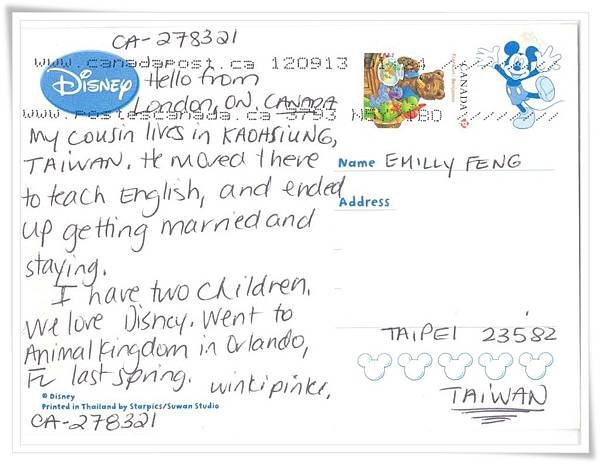 CA-278321
www.canadapost.ca 120913
DISNEY
Hello from
London, ON. CANADA
www.postescanada.ca 3793
My cousin lives in KAOHSIUNG,
TAIWAN. He moved there
to teach English, and ended
up getting married and
staying.
I have two children.
We love Disney. Went to
Animal Kingdom in Orlando,
FL last spring. winkipinki.
© Disney
Printed in Thailand by Starpics/Suwan Studio
CA-278321
CANADA
P
Name EMILLY FENG
Address
TAIPEI 23582
TAIWAN